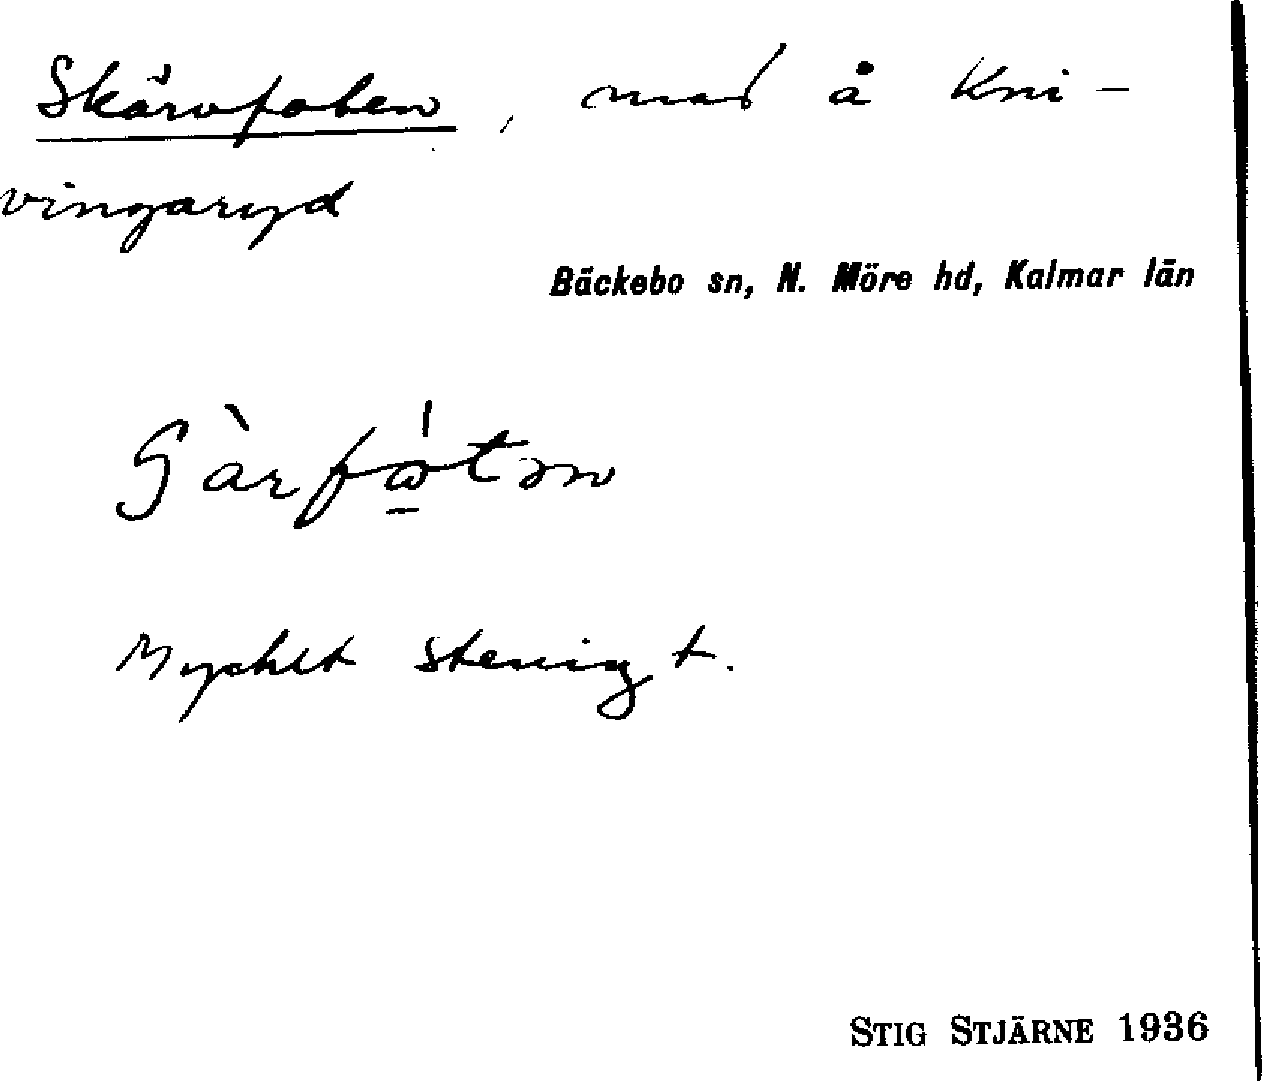 Skärvfoten, mad å Kni-
vingaryd
Bäckebo sn, N. Möre hd, Kalmar län
Mycket stenigt.
STIG STJÄRNE 1936